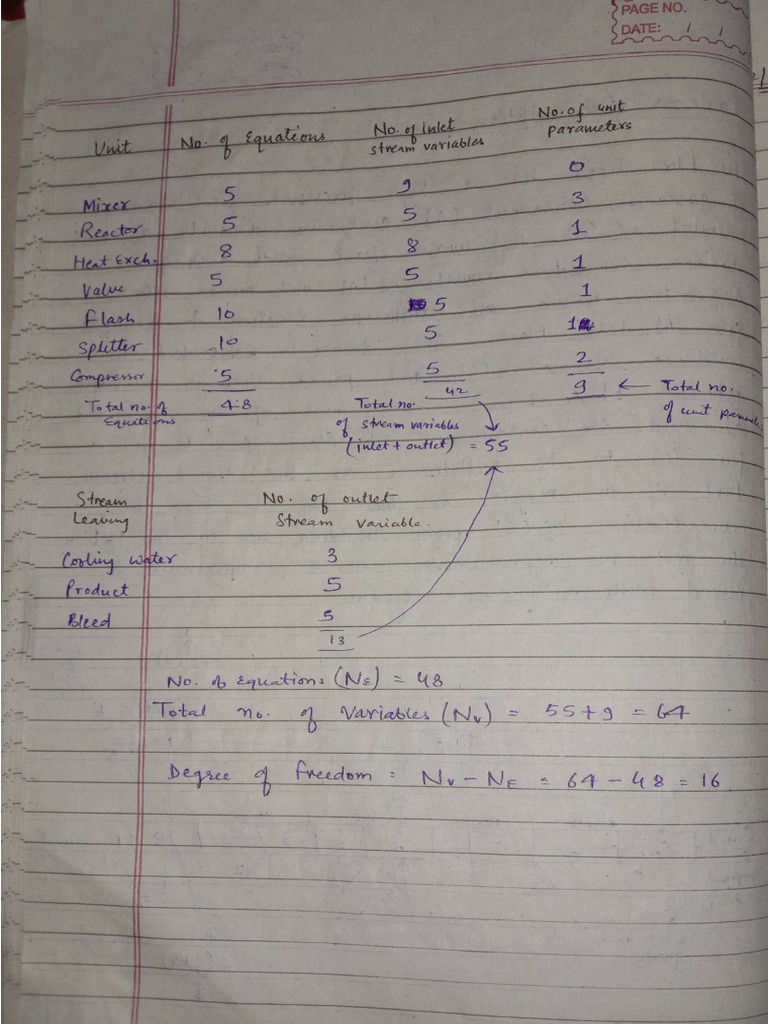 PAGE NO.
DATE: / /
Unit No. of Equations No. of inlet stream variables No. of unit parameters
Mixer 5 9 0
Reactor 5 5 3
Heat Exch. 8 8 1
Valve 5 5 1
Flash 10 5 1
Splitter 10 5 1
Compressor 5 5 2
42
Total no. of Equations 48 Total no. of stream variables (inlet + outlet) = 55 9 ← Total no. of unit
Stream Leaving No. of outlet Stream Variable.
Cooling water 3
Product 5
Bleed 5
13
No. of Equations (NE) = 48
Total no. of Variables (Nv) = 55+9 = 64
Degree of freedom = Nv - NE = 64 - 48 = 16